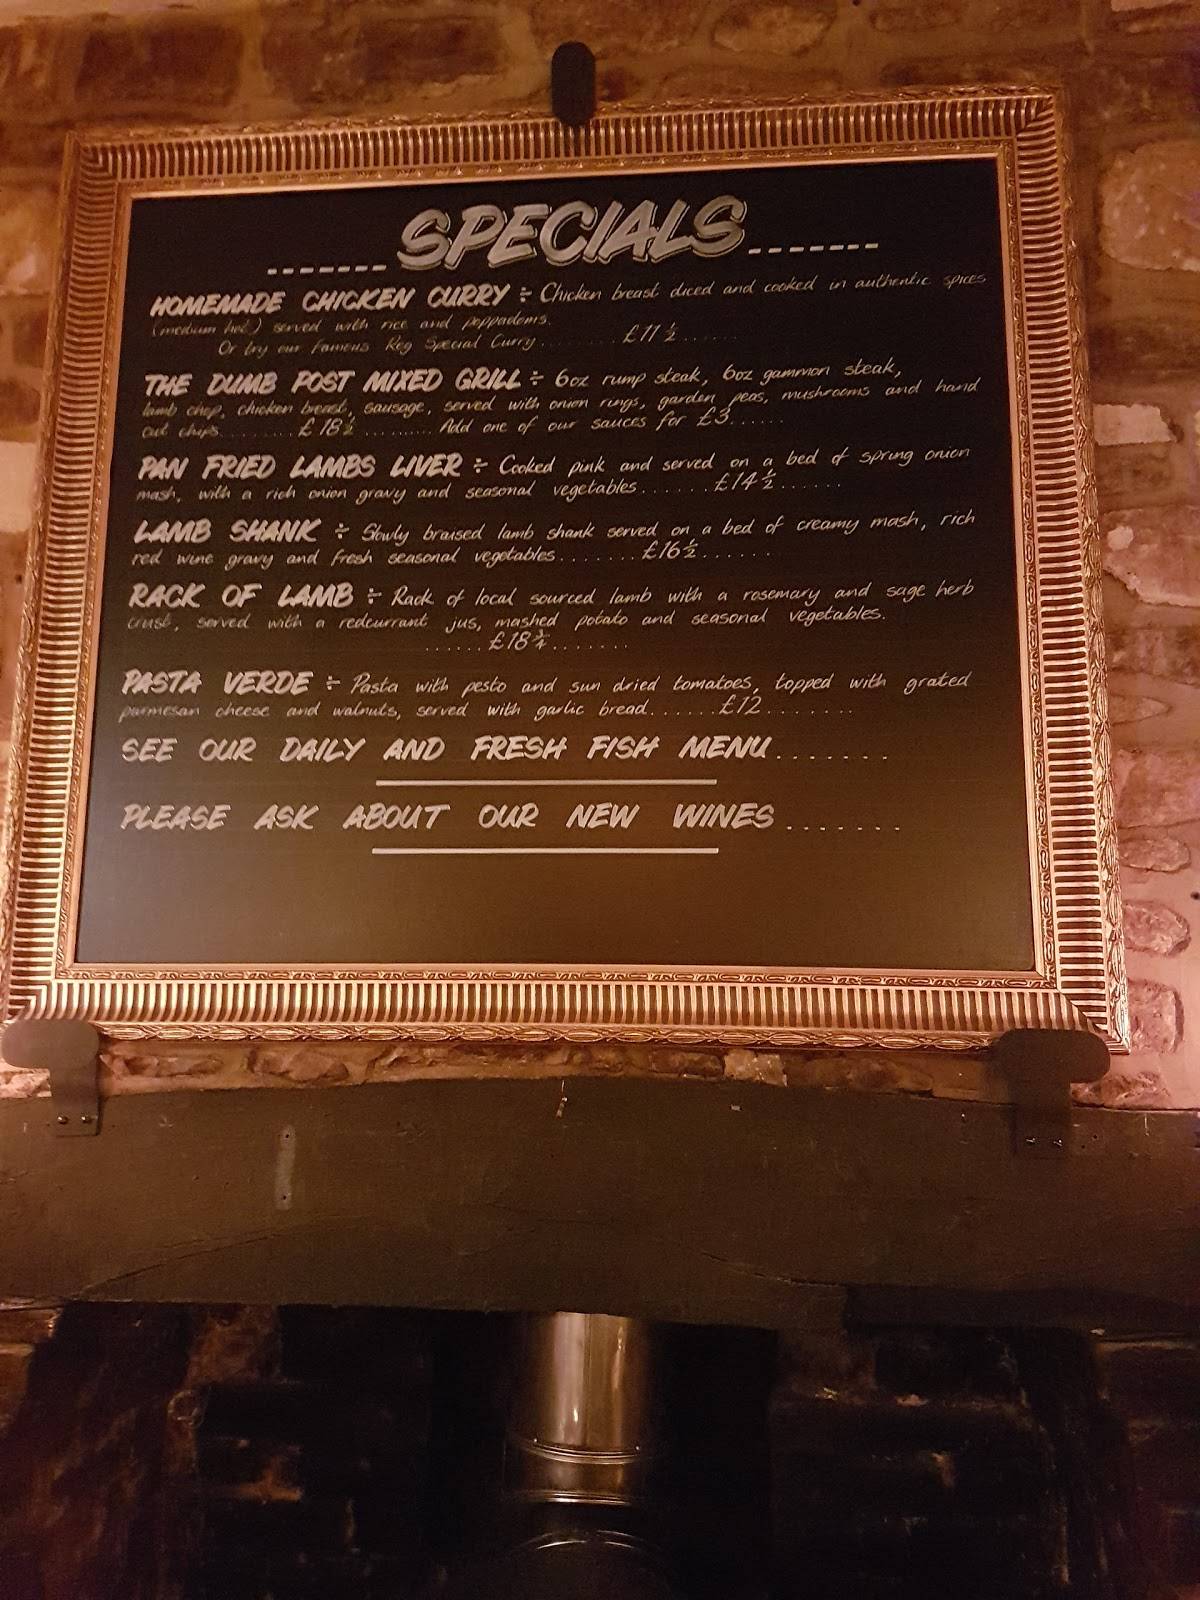 SPECIALS
HOMEMADE CHICKEN CURRY ÷ Chicken breast diced and cooked in authentic spices
(medium hot) served with rice and poppadoms.
Or try our famous Reg Special Curry.......... £11½......
THE DUMB POST MIXED GRILL ÷ 6oz rump steak, 6oz gammon steak,
lamb chop, chicken breast, sausage, served with onion rings, garden peas, mushrooms and hand
cut chips......... £18½ .......... Add one of our sauces for £3......
PAN FRIED LAMBS LIVER ÷ Cooked pink and served on a bed of spring onion
mash, with a rich onion gravy and seasonal vegetables......£14½......
LAMB SHANK ÷ Slowly braised lamb shank served on a bed of creamy mash, rich
red wine gravy and fresh seasonal vegetables........£16½.......
RACK OF LAMB ÷ Rack of local sourced lamb with a rosemary and sage herb
crust, served with a redcurrant jus, mashed potato and seasonal vegetables.
......£18¾.......
PASTA VERDE ÷ Pasta with pesto and sun dried tomatoes, topped with grated
parmesan cheese and walnuts, served with garlic bread......£12........
SEE OUR DAILY AND FRESH FISH MENU.......
PLEASE ASK ABOUT OUR NEW WINES.......